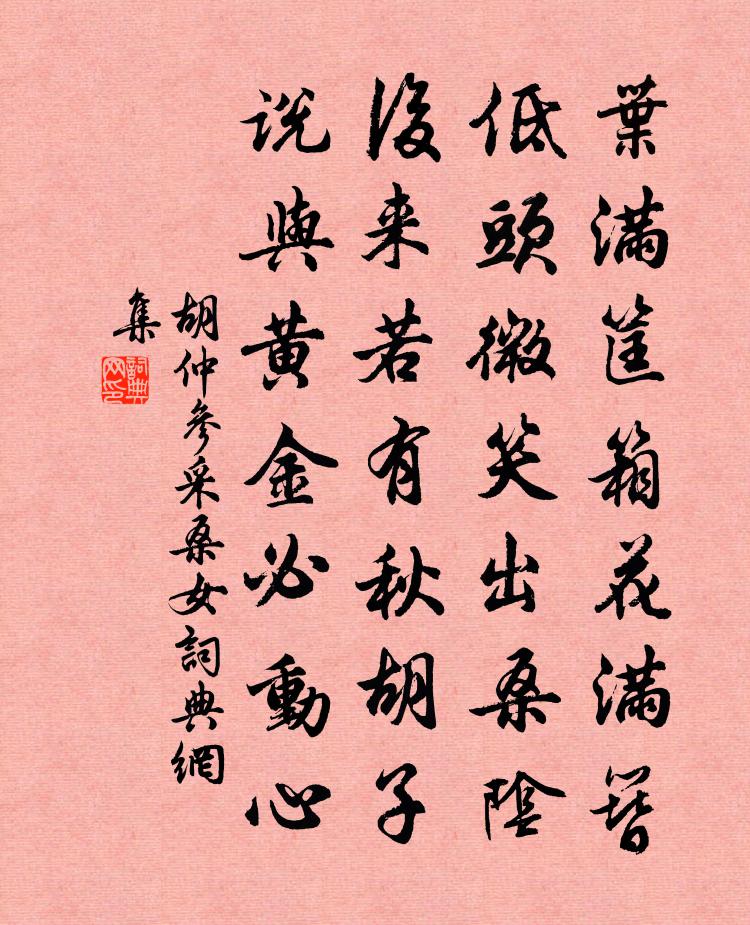 葉滿筐箱花滿簪
低頭微笑出桑陰
後来若有秋胡子
説與黄金必動心
胡仲參采桑女詞典網
集
詞典
网印